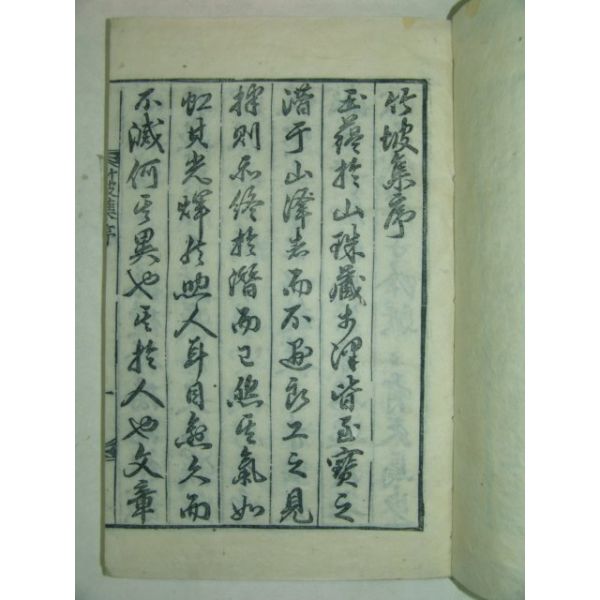 竹坡集序
玉蘊於山珠藏于澤皆至寶之
潛于山澤者而不遇良工之見
擇則不終於潛而已然其氣如
虹其光輝於照人耳目愈久而
不滅何其異也其於人也文章
竹坡集序